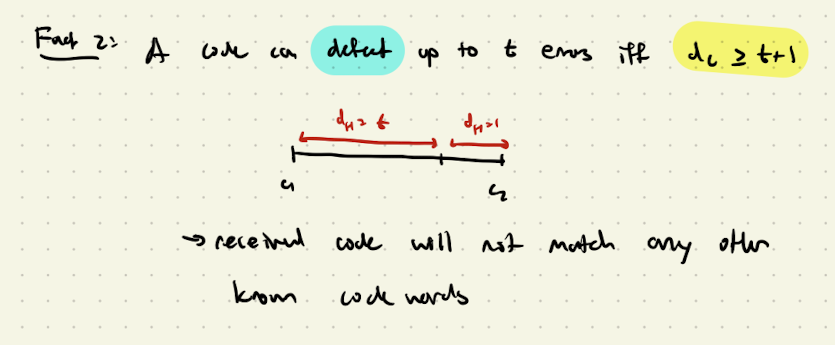 Fact 2: A code can detect up to t errors iff d_c ≥ t+1
d_H = t d_H = 1
c_1 c_2
→ received code will not match any other
known code words